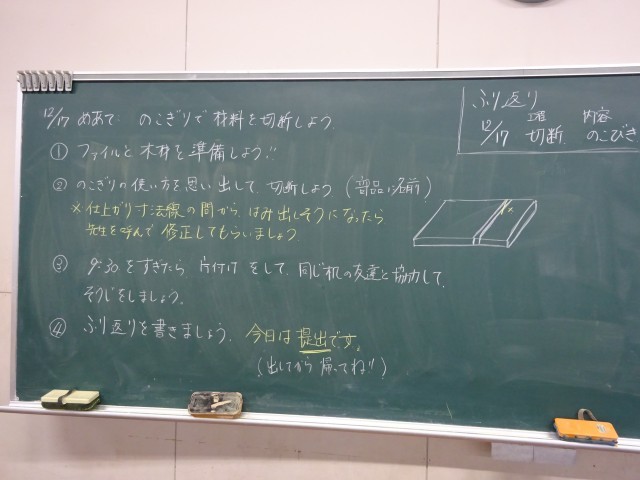 12/17 めあて: のこぎりで材料を切断しよう.
① ファイルと木材を準備しよう!!
② のこぎりの使い方を思い出して、切断しよう (部品に名前)
※仕上がり寸法線の間から、はみ出しそうになったら
先生を呼んで修正してもらいましょう.
③ 9:30をすぎたら 片付けをして、同じ机の友達と協力して、
そうじをしましょう.
④ ふり返りを書きましょう. 今日は提出です。
(出してから帰ってね!!)
ふり返り
工程 内容
12/17 切断. のこびき